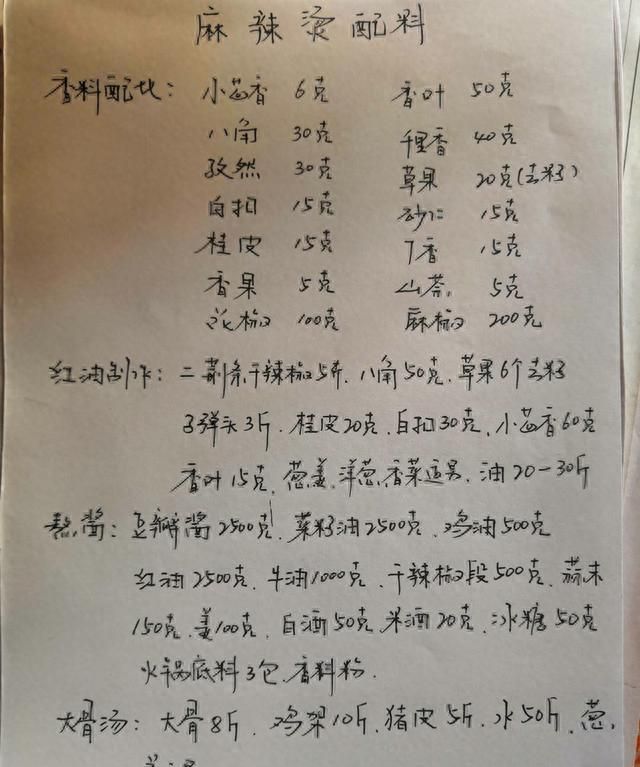 麻辣烫配料
香料配比: 小茴香 6克 香叶 50克
八角 30克 千里香 40克
孜然 30克 草果 20克(去籽)
白扣 15克 砂仁 15克
桂皮 15克 丁香 15克
香果 5克 山萘 5克
花椒 100克 麻椒 200克
红油制作: 二荆条干辣椒5斤. 八角50克. 草果6个去籽
子弹头3斤. 桂皮20克. 白扣30克. 小茴香60克
香叶15克. 葱姜. 洋葱. 香菜适量. 油20-30斤
熬酱: 豆瓣酱2500克. 菜籽油2500克. 鸡油500克
红油2500克. 牛油1000克. 干辣椒段500克. 蒜末
150克. 姜100克. 白酒50克. 米酒20克. 冰糖50克
火锅底料3包. 香料粉.
大骨汤: 大骨8斤. 鸡架10斤. 猪皮5斤. 水50斤. 葱.